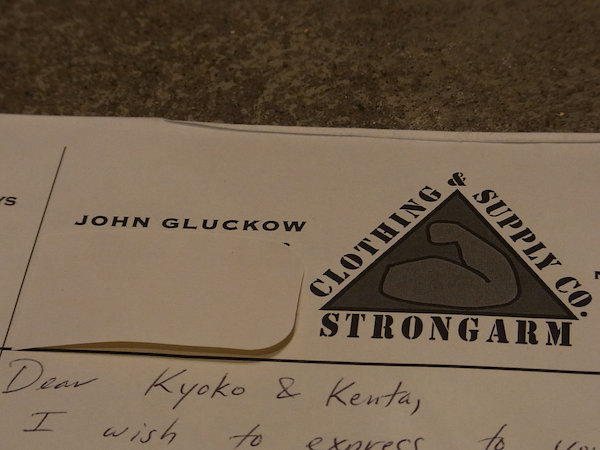 JOHN GLUCKOW
CLOTHING & SUPPLY CO.
STRONGARM
Dear Kyoko & Kenta,
I wish to express to